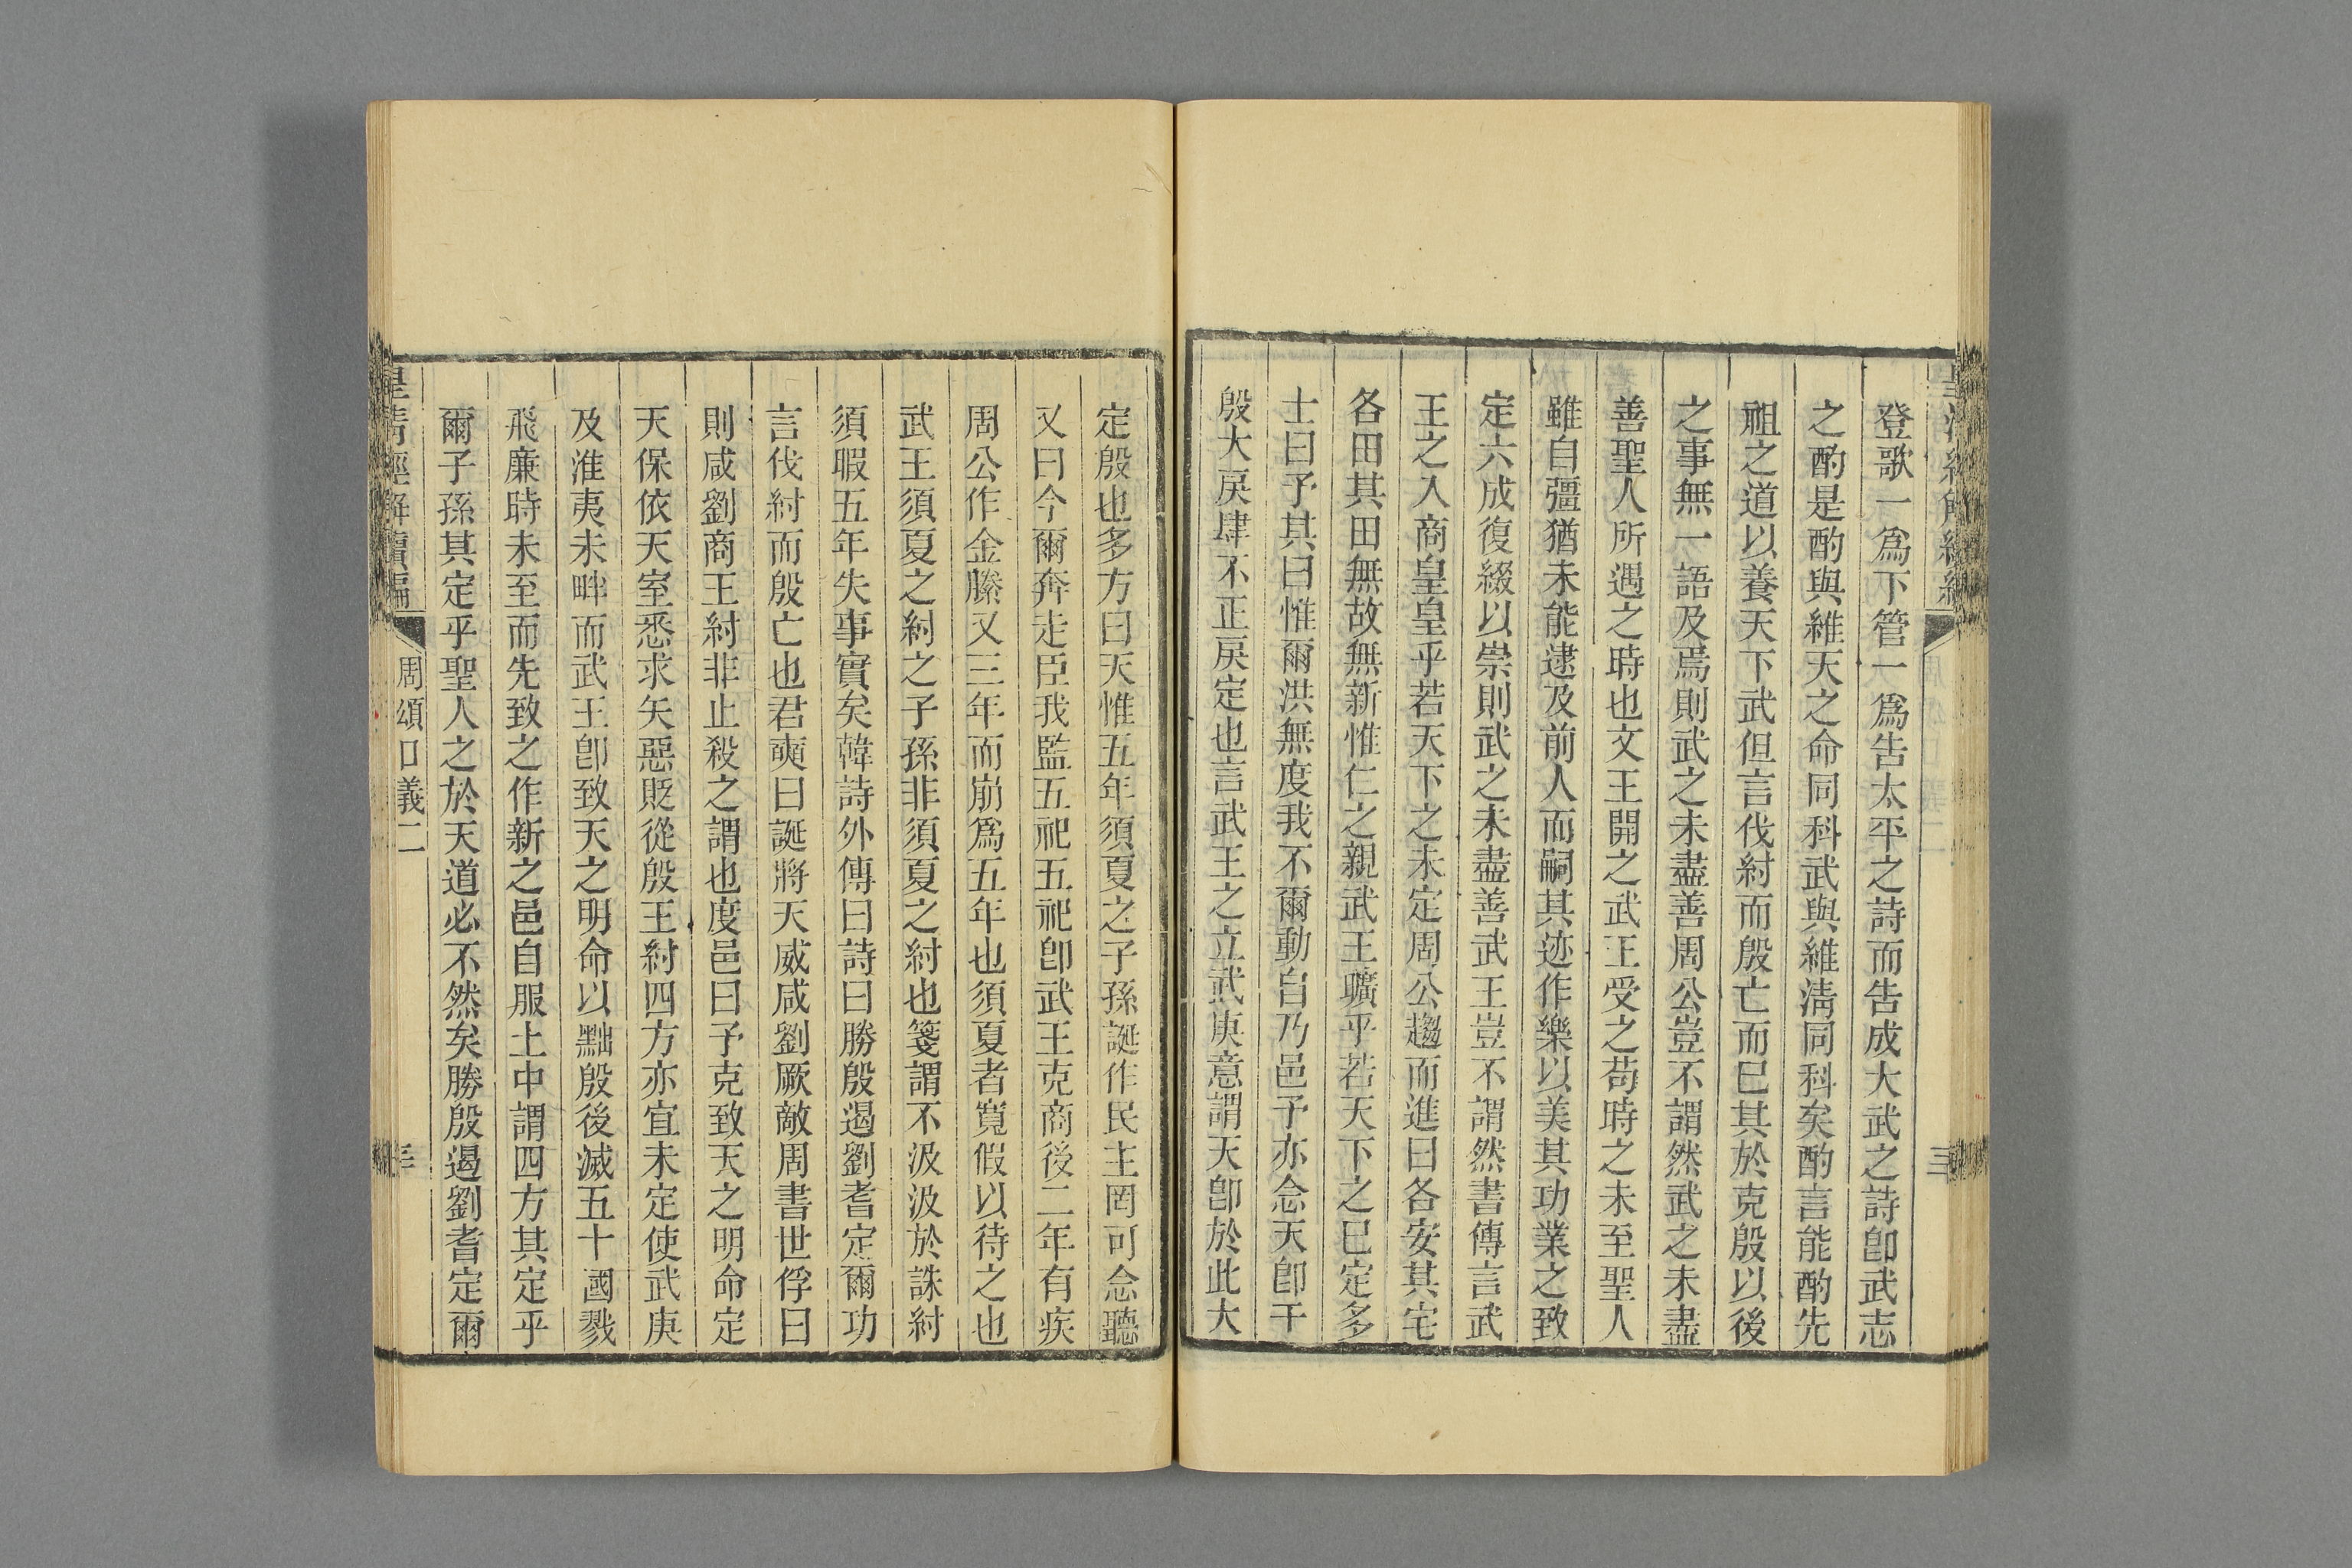 登歌一爲下管一爲告太平之詩而告成大武之詩卽武志
之酌是酌與維天之命同科武與維淸同科矣酌言能酌先
祖之道以養天下武但言伐紂而殷亡而已其於克殷以後
之事無一語及焉則武之未盡善周公豈不謂然武之未盡
善聖人所遇之時也文王開之武王受之苟時之未至聖人
雖自彊猶未能逮及前人而嗣其迹作樂以美其功業之致
定六成復綴以崇則武之未盡善武王豈不謂然書傳言武
王之入商皇皇乎若天下之未定周公趨而進曰各安其宅
各田其田無故無新惟仁之親武王曠乎若天下之已定多
士曰予其曰惟爾洪無度我不爾動自乃邑予亦念天卽于
殷大戾肆不正戾定也言武王之立武庚意謂天卽於此大
定殷也多方曰天惟五年須夏之子孫誕作民主罔可念聽
又曰今爾奔走臣我監五祀五祀卽武王克商後二年有疾
周公作金縢又三年而崩爲五年也須夏者寬假以待之也
武王須夏之紂之子孫非須夏之紂也箋謂不汲汲於誅紂
須暇五年失事實矣韓詩外傳曰詩曰勝殷遏劉耆定爾功
言伐紂而殷亡也君奭曰誕將天威咸劉厥敵周書世俘曰
則咸劉商王紂非止殺之謂也度邑曰予克致天之明命定
天保依天室悉求矢惡貶從殷王紂四方亦宜未定使武庚
及淮夷未畔而武王卽致天之明命以黜殷後滅五十國戮
飛廉時未至而先致之作新之邑自服土中謂四方其定乎
爾子孫其定乎聖人之於天道必不然矣勝殷遏劉耆定爾
皇清經解續編
周頌口義二